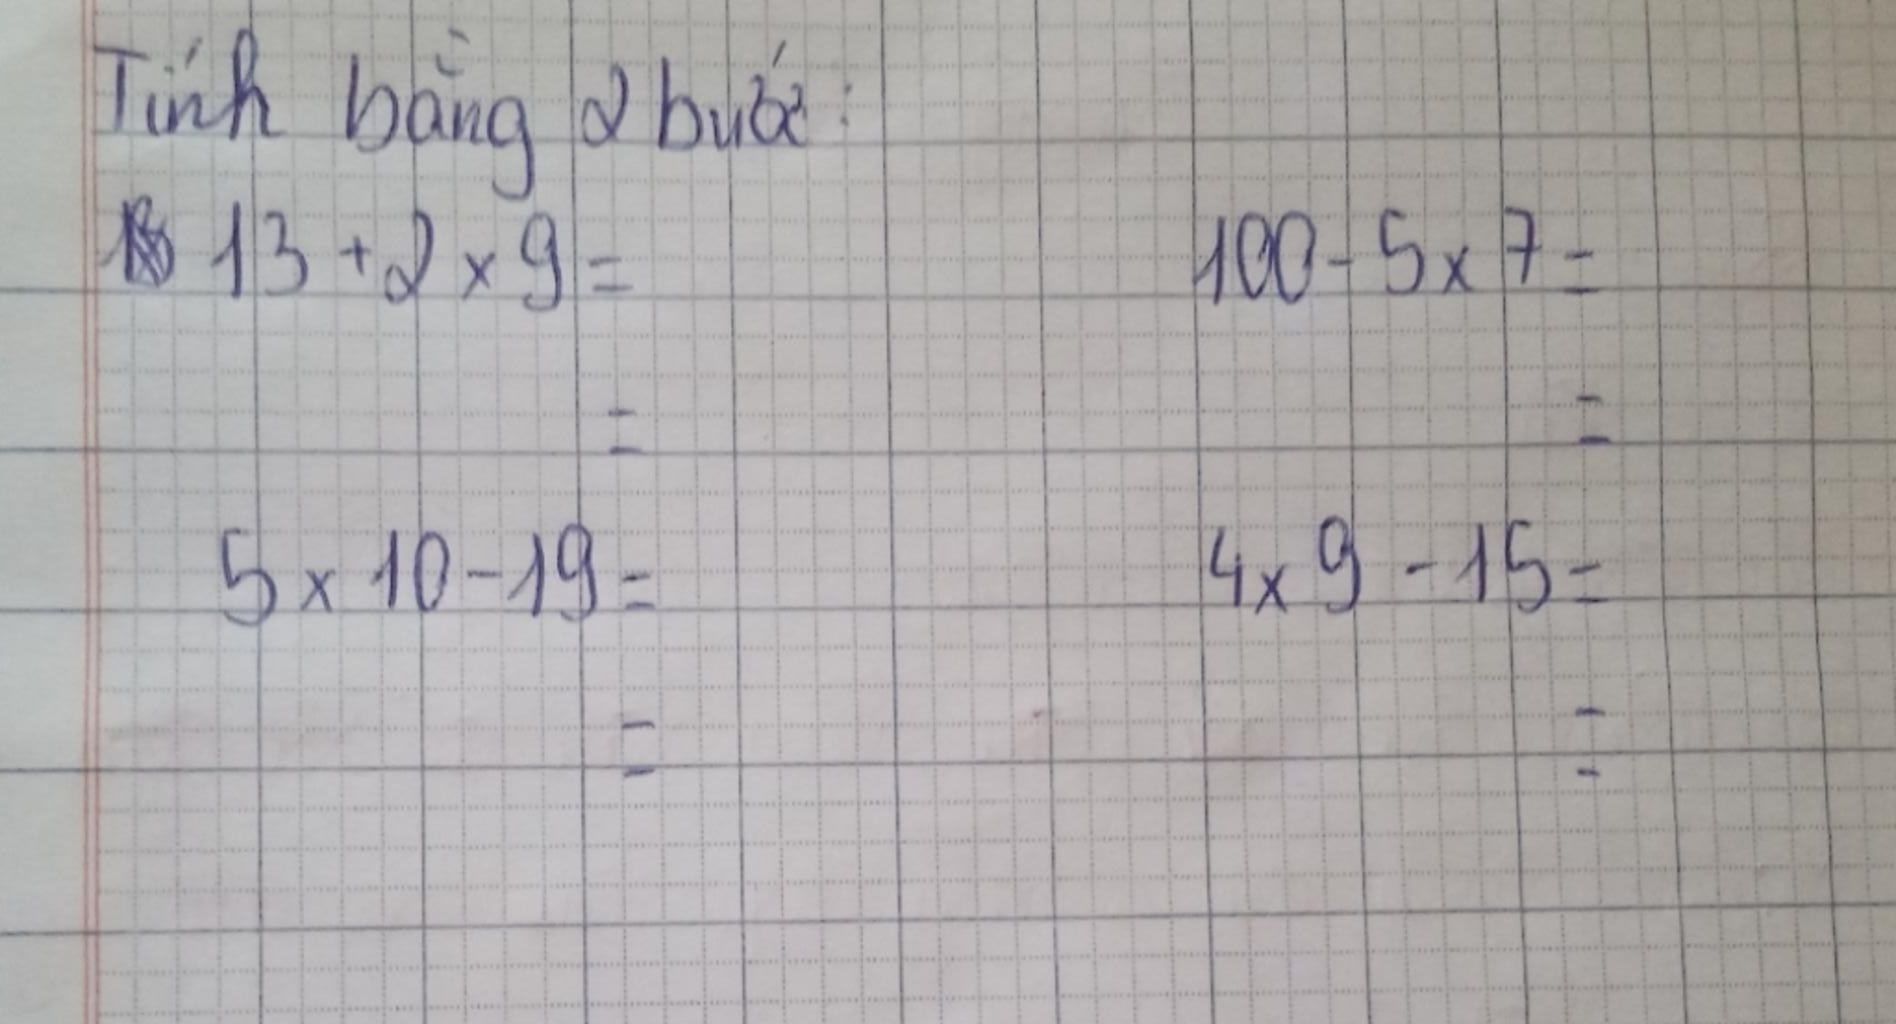 Tính bằng 2 bước:
13 + 2 x 9 = 100 - 5 x 7 =
= =
5 x 10 - 19 = 4 x 9 - 15 =
= =